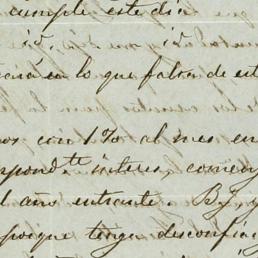 cumple este dia
is. is.
en lo que falta de est
os con 1% al mes en
spond.te interes comen
l año entrante. B
porque tenga desconfia